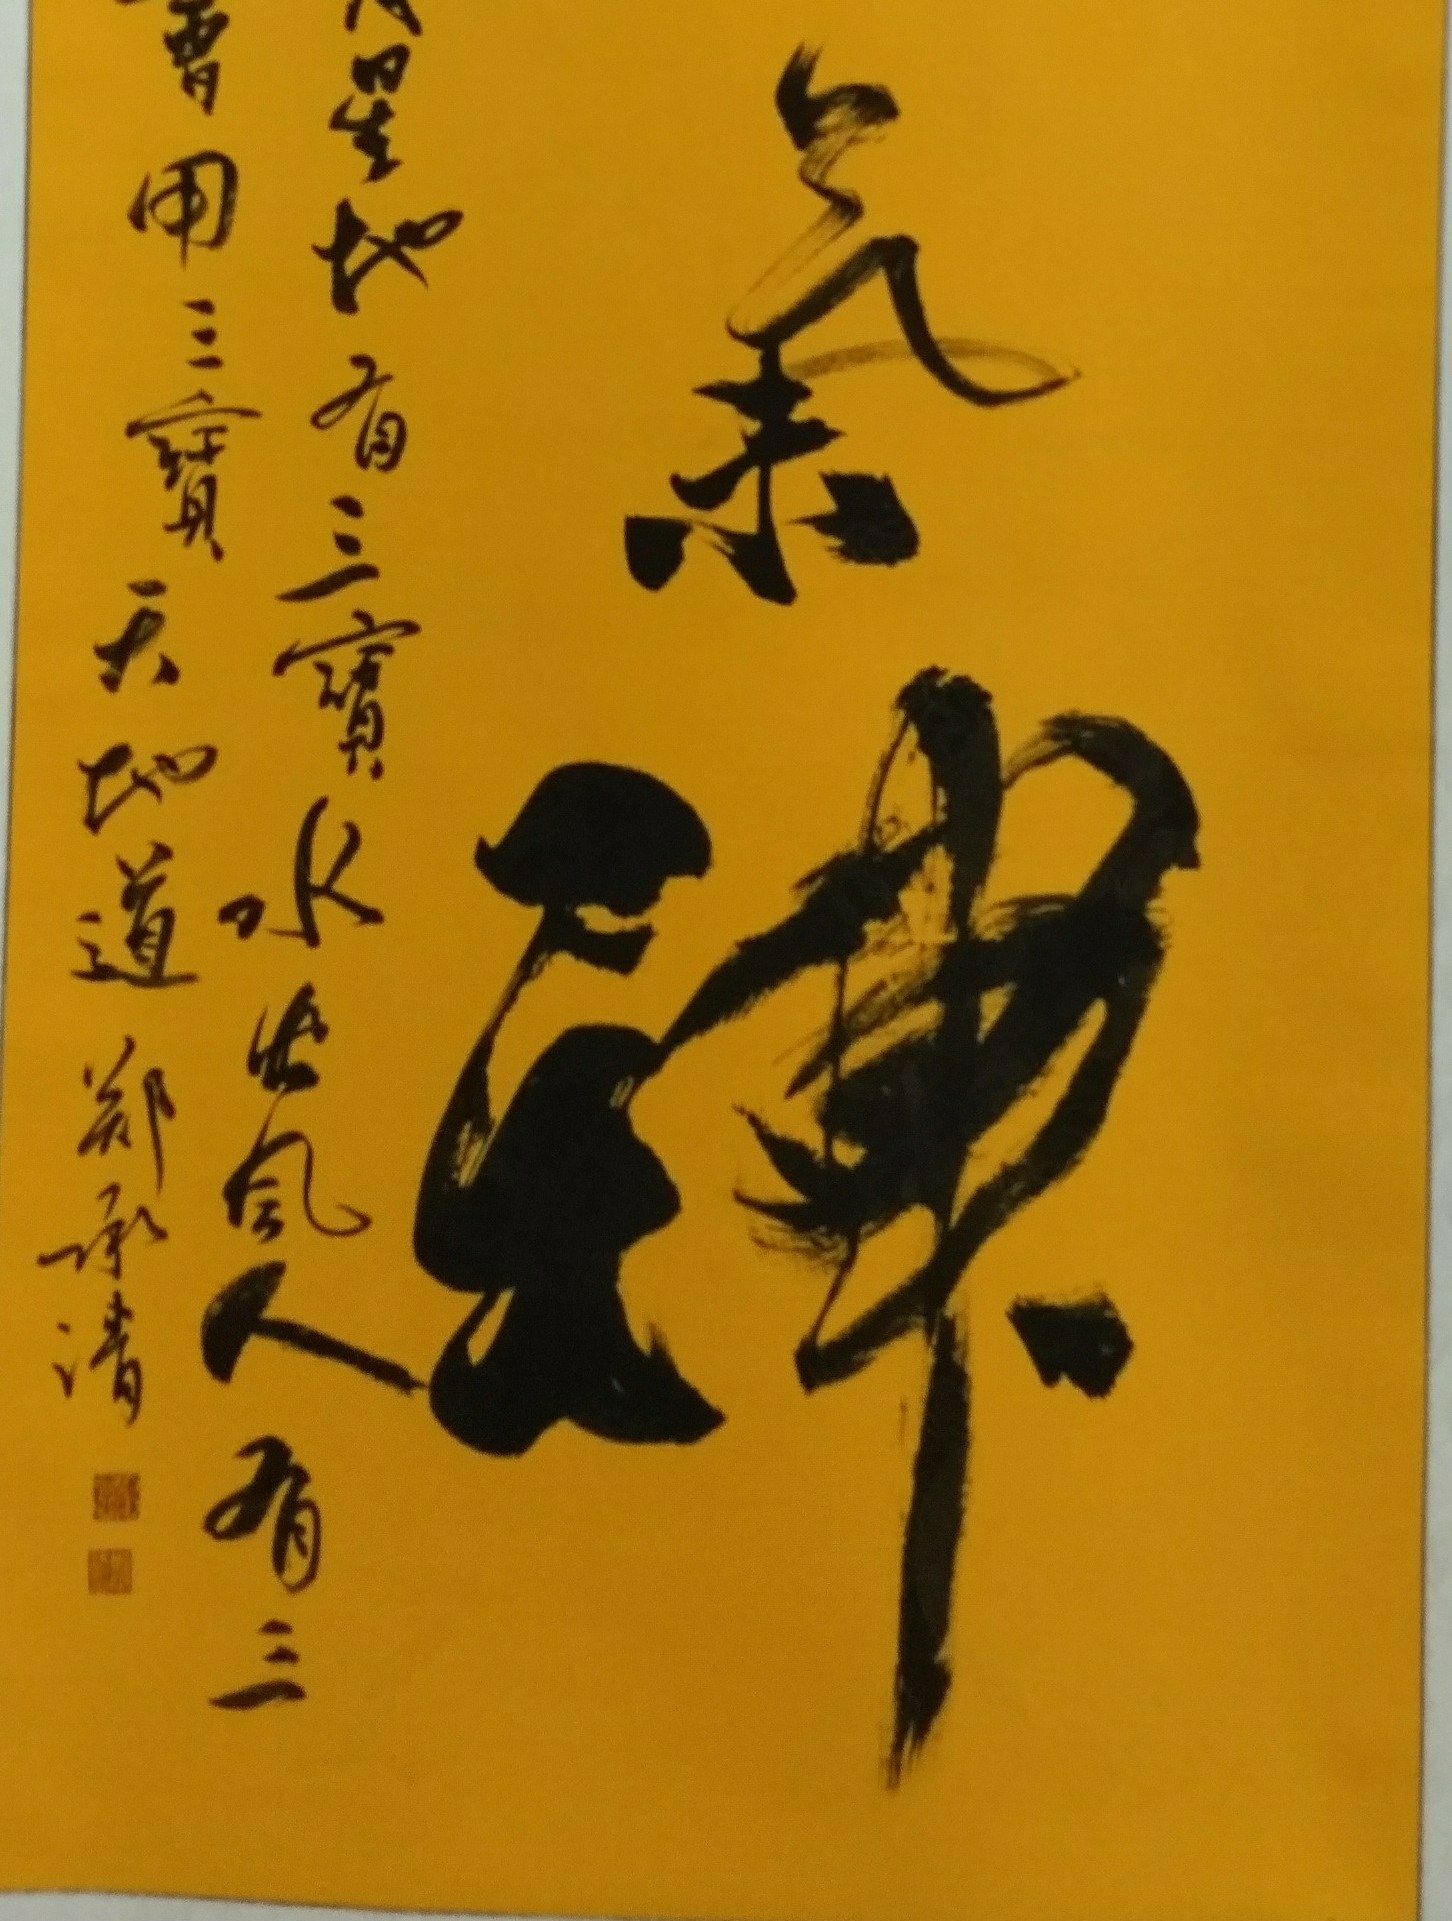 氣神
星地有三寶水火風人有三
會用三寶天地道 郑承清